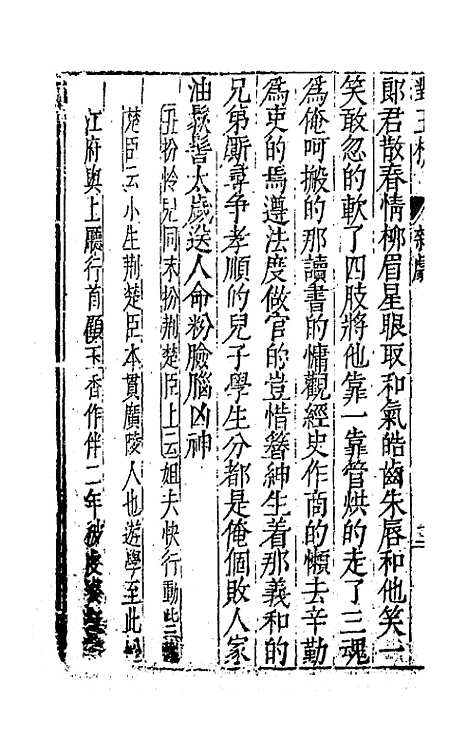 對玉梳 雜劇
郎君散春情柳眉星眼取和氣皓齒朱唇和他笑一
笑敢忽的軟了四肢將他靠一靠管烘的走了三魂
為俺呵搬的那讀書的慵觀經史作商的懶去辛勤
為吏的焉遵法度做官的豈惜簪紳生着那義和的
兄弟廝尋爭孝順的兒子學生分都是俺個敗人家
油鬏髻太歲送人命粉臉腦凶神
丑扮怜兒同末扮荆楚臣上云姐夫快行動些
楚臣云小生荆楚臣本貫廣陵人也遊學至此
江府與上廳行首顧玉香作伴二年